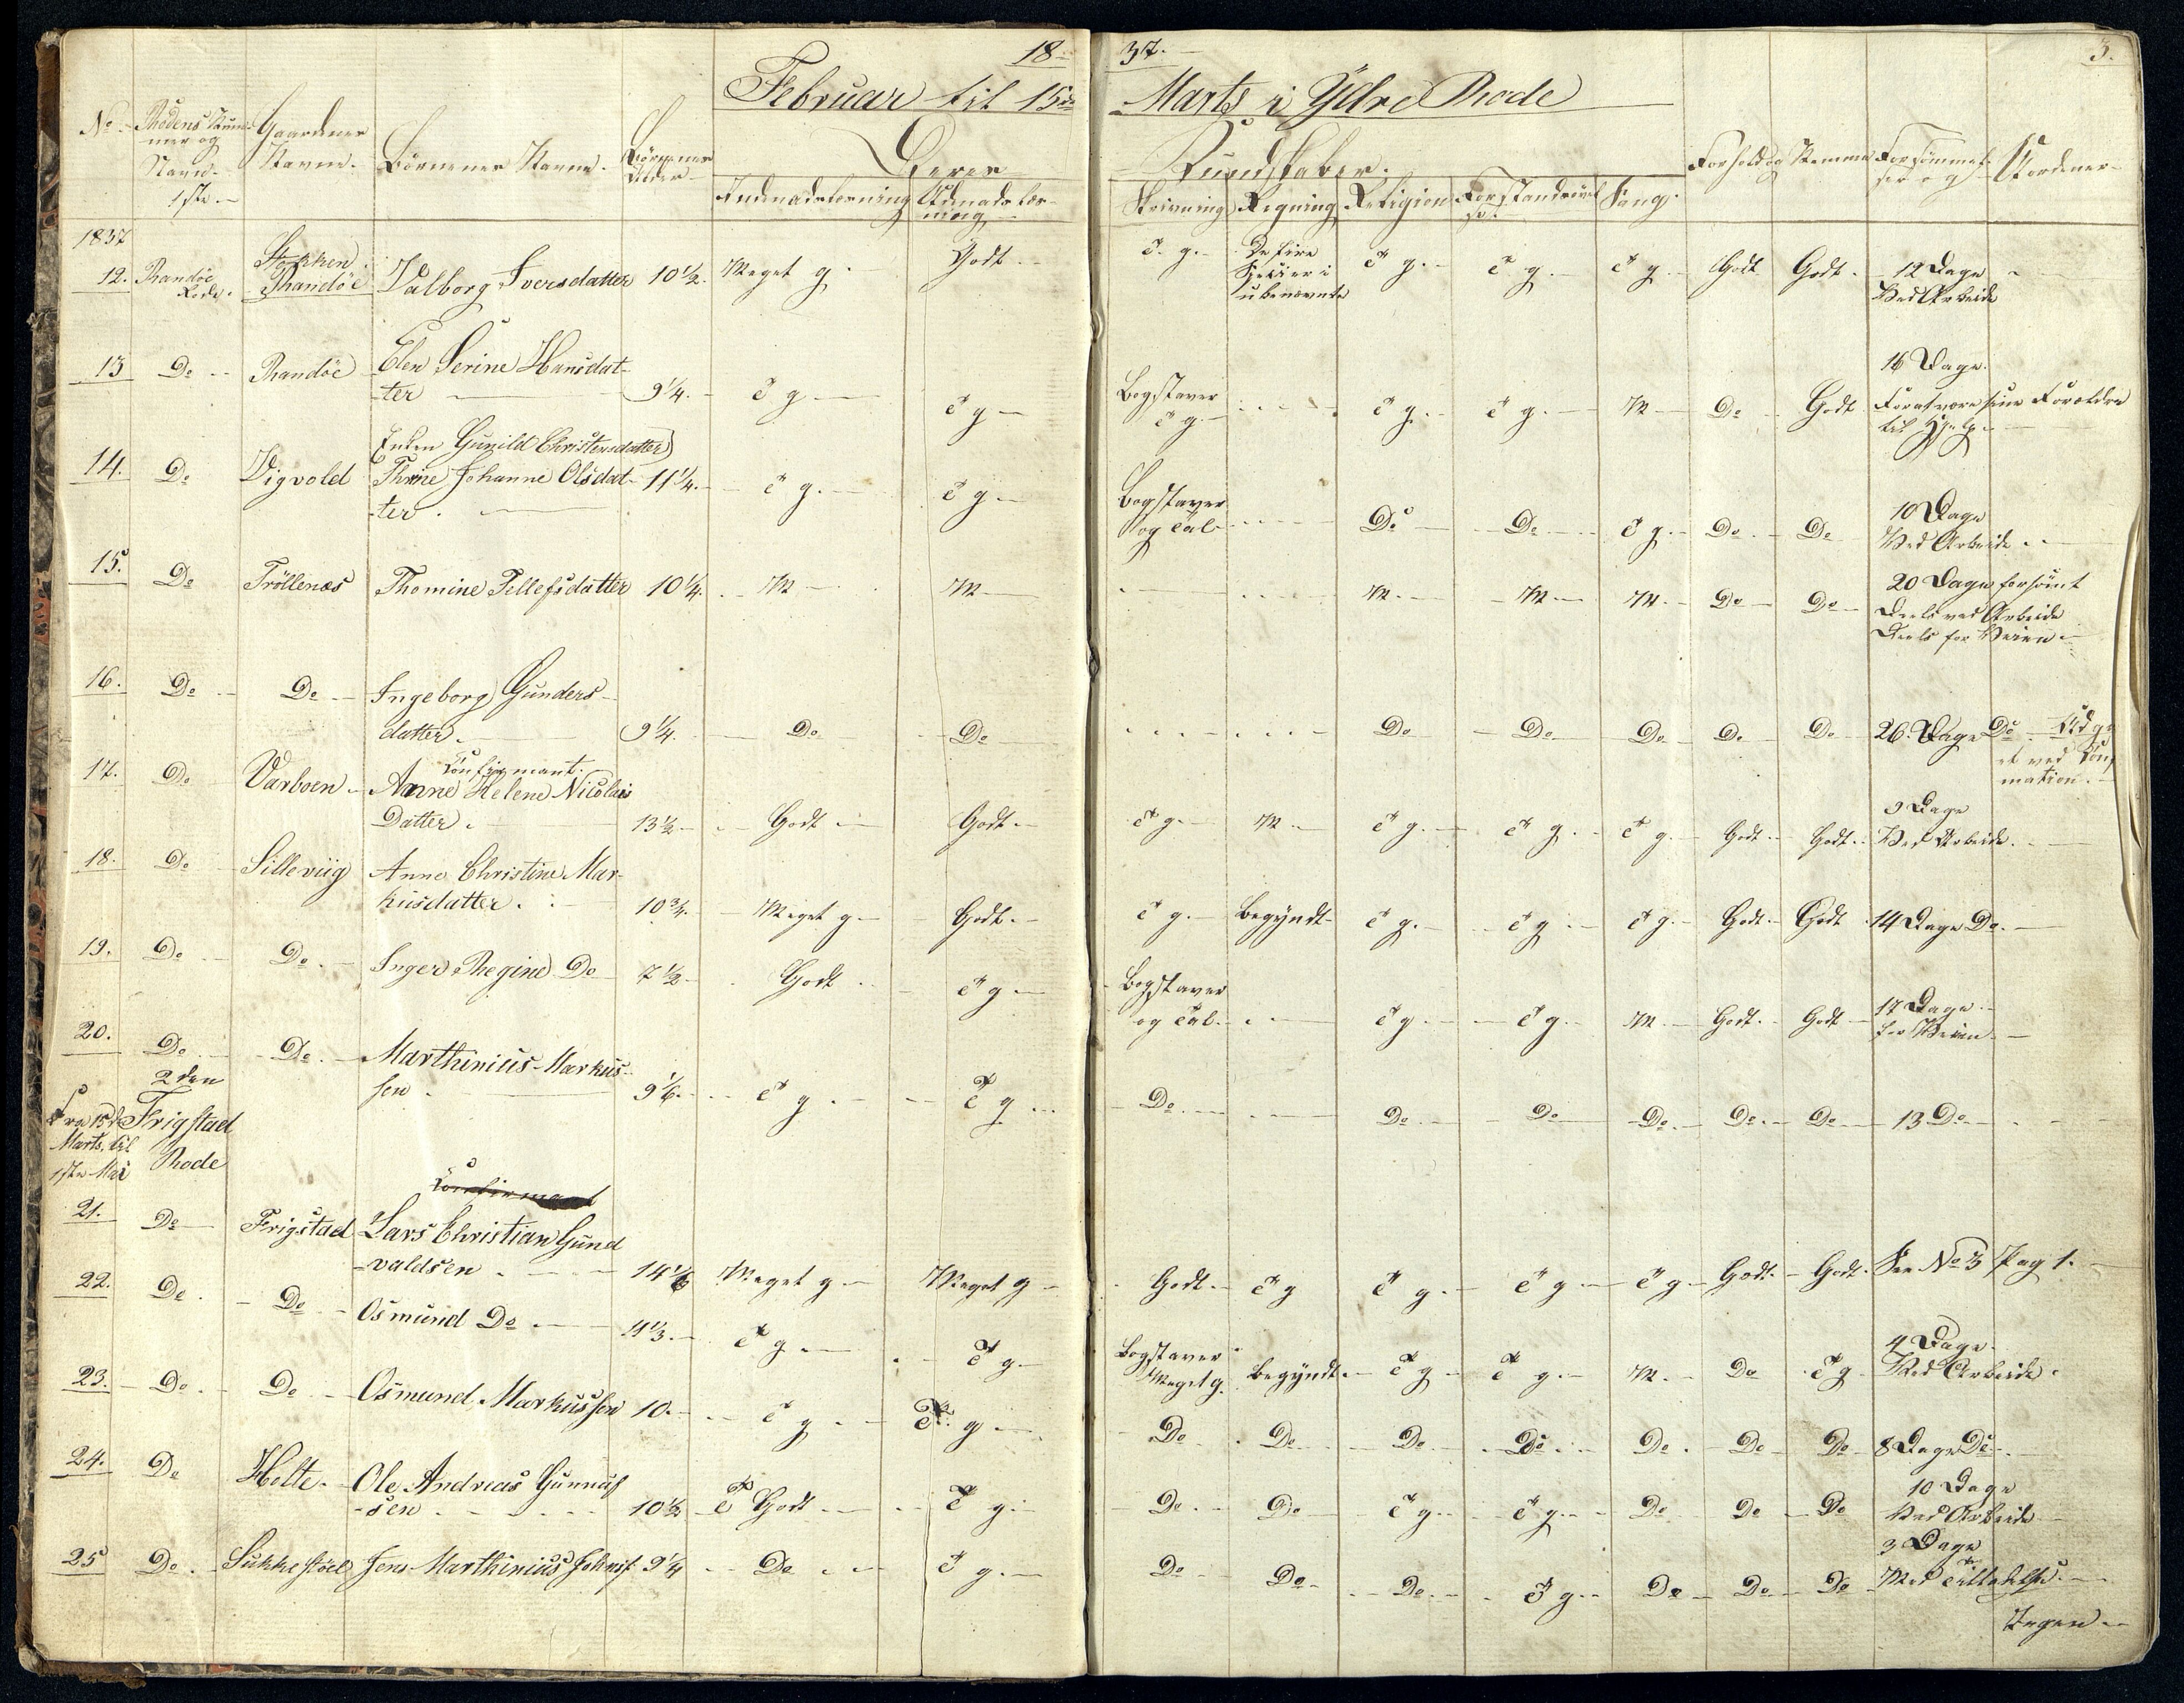 18 37. 3.
Februar til 15de Marts i Ydre Rode
No Rodens Num-
mer og
Navn.
1ste
Gaardenes
Navne.
Börnenes Navne.
Börnenes
Alder
Deres Kundskaber.
Indenadslæsning Udenadslæs-
ning
Skrivning Regning Religion Forstandsövel
se Sang.
Forhold og Nemme Forsömmel-
ser og
1837
12. Randöe
Rode. Stokken
Randöe Valborg Iversdatter 10 1/2. Meget g. Godt T. g. De fire
Specier i
ubenævnte T g. T g. T g. Godt Godt. 12 Dage
Ved Arbeide
13 Do Randöe Elen Serine Hansdat-
ter 9 1/4. T g T g Bogstaver
T g. T g. T g. M Do Godt 16 Dage.
Forat være sine Forældre
til Hjelp
(Enken Gunild Christensdatter)
14. Do Vigvold Thrine Johanne Olsdat-
ter. 11 1/4. T g. T g Bogstaver
og Tal Do Do T g. Do. Do 10 Dage
Ved Arbeide
15. Do Tröllenæs Thomine Tellefsdatter 10 1/4. M M M. M. M. Do Do 20 Dage forsömt
Deels ved Arbeide
Deels for Veien
16. Do Do Ingeborg Gunders-
datter. 9 1/4. Do Do Do Do Do Do Do 26. Dage Do Udg
et ved Con
mation.
Confirmant.
17. Do Varboen Anne Helene Nicolais
Datter. 13 1/2 Godt Godt. T g. M T g. T g. T g. Godt. Godt. 9 Dage
Ved Arbeide.
18. Do Silleviig Anne Christine Mar-
kusdatter. 10 3/4. Meget g. Godt. T g. Begyndt T g. T g T g. Godt. Godt 14 Dage Do.
19. Do Do. Inger Regine Do 7 1/2 Godt T g. Bogstaver
og Tal. T g T g. M. Godt. Godt 17 Dage
for Veien.
20. Do Do. Marthinius Markus-
sen. 9 1/6. T g. T g Do. Do. Do Do. Do. Do 13 Do
Fra 15de
Marts til
1ste Mai
2den
Frigstad
Rode
Confirmant
21. Do Frigstad Lars Christian Gund
valdsen. 14 1/6 Meget g. Meget g Godt. T g T g. T g T g Godt. Godt. See No 3 Pag 1.
22. Do. Do Osmund Do. 11 1/3. T g. T g. Bogstaver
Meget g. Begyndt. T g T g. M. Do T g 4 Dage.
Ved Arbeide.
23. Do. Do Osmund Markussen 10. T g. T. g. Do Do Do. Do Do. Do Do 8 Dage Do
24. Do Holte. Ole Andreas Gunnuf
sen. 10 1/2 T Godt T g. Do. Do T g. T g. Do Do Do 10 Dage
Ved Arbeide
25 Do. Sukkestöel Jens Marthinius Johnsf 9 1/4 Do T g. Do Do. Do. T g. Do Do Do 3 Dage
Med Tilladelse.